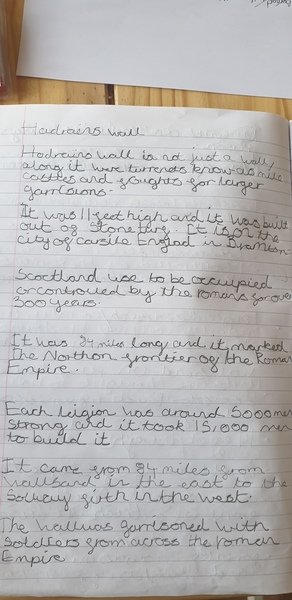 Hadrains wall
Hadrains wall is not just a wall,
along it were turrents know as mile
castles and fought for larger
garrisons.
It was 11 feet high and it was built
out of Stone turf. It is on the
city of carsile Englad in Bramton
Scoctland use to be occupied
or controued by the romans for over
300 years.
It was 94 miles long and it marked
The Northon frontier of the Roman
Empire.
Each leigion was around 5000 men
strong and it took 15,000 men
to build it
It came from 84 miles from
wallsand in the east to the
Solway firth in the west.
The wall was garrisoned with
Soldiers from across the roman
Empire